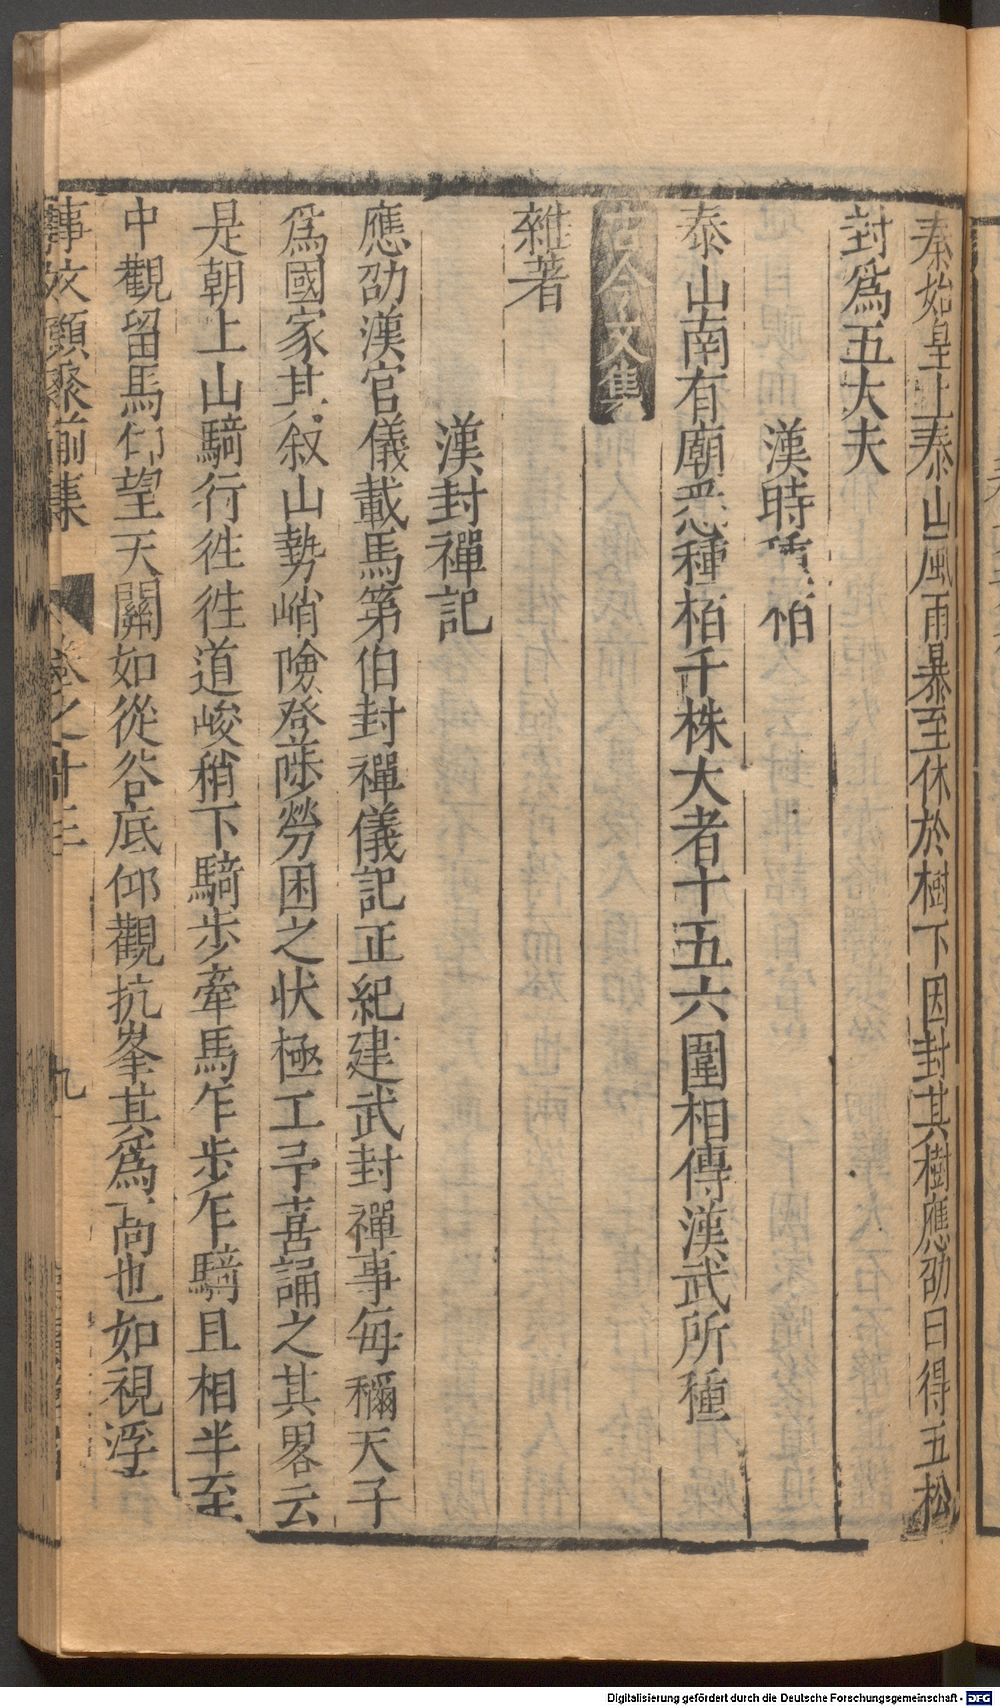 秦始皇上泰山風雨暴至休於樹下因封其樹應劭曰得五松
封爲五大夫
漢時植栢
泰山南有廟悉種栢千株大者十五六圍相傳漢武所種
古今文集
雜著
漢封禪記
應劭漢官儀載馬第伯封禪儀記正紀建武封禪事每稱天子
爲國家其叙山勢峭嶮登陟勞困之状極工予喜誦之其畧云
是朝上山騎行徃徃道峻稍下騎步牽馬乍步乍騎且相半至
中觀留馬仰望天關如從谷底仰觀抗峯其爲高也如視浮
事文類聚前集 卷之十三 九
Digitalisierung gefördert durch die Deutsche Forschungsgemeinschaft - DFG